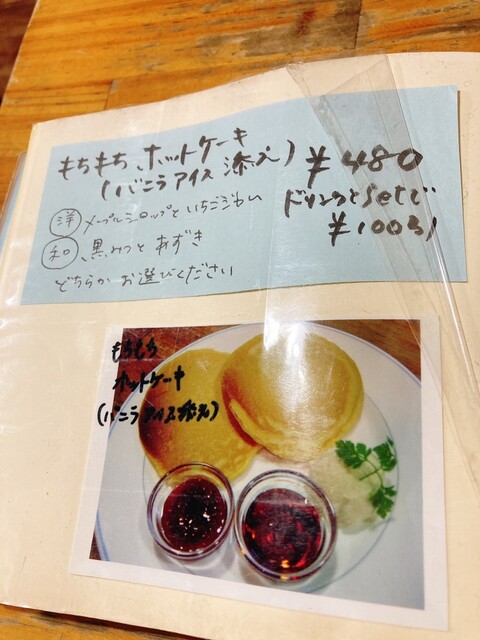 もちもちホットケーキ
(バニラアイス添え) ¥480
ドリンクとSetで
¥100引
洋 メープルシロップといちごジャム
和 黒みつとあずき
どちらかお選びください
もちもち
ホットケーキ
(バニラアイス添え)